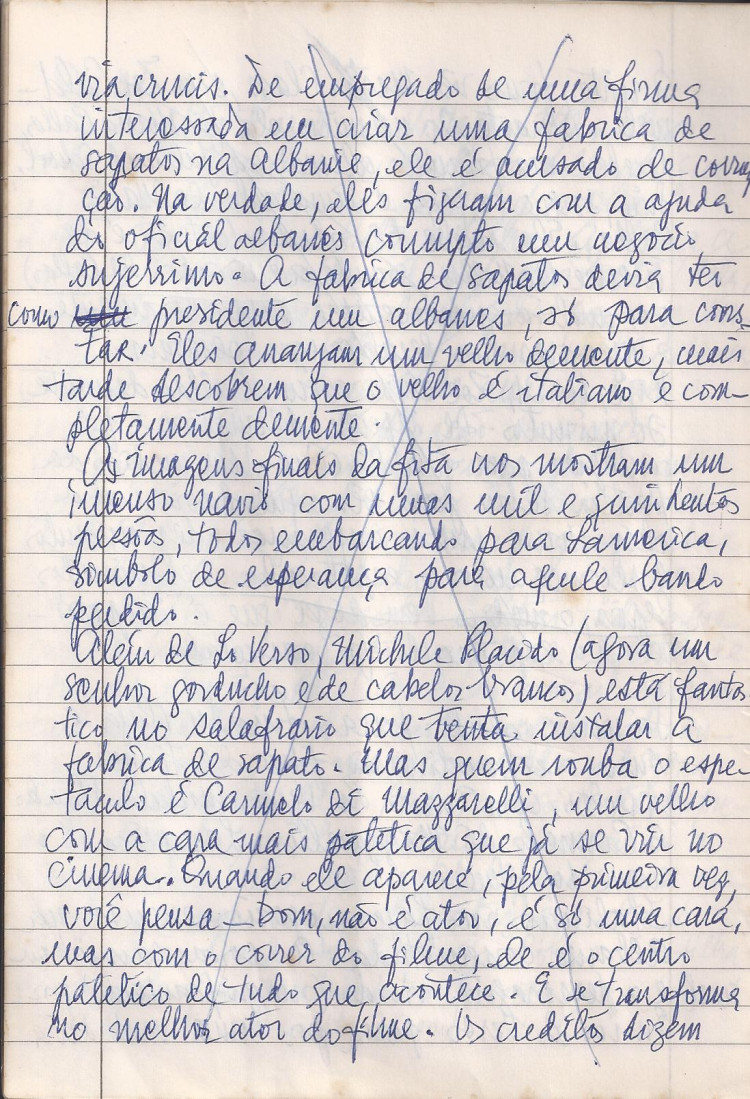 via crucis. De empregado de uma firma
interessada em criar uma fabrica de
sapatos na Albania, ele é acusado de corrup
ção. Na verdade, eles fizeram com a ajuda
do oficial albanês corrupto um negocio
sujerrimo. A fabrica de sapatos devia ter
como presidente um albanes, só para cons-
tar. Eles arranjam um velho demente, mais
tarde descobrem que o velho é italiano e com-
pletamente demente.
Os imagens finais da fita nos mostram um
imenso navio com umas mil e quinhentos
pessoas, todos embarcando para Lamerica,
simbolo de esperança para aquele bando
perdido.
Além de Lo Verso, Michele Placido (agora um
senhor gorducho e de cabelos brancos) está fantas
tico no salafrario que tenta instalar a
fabrica de sapato. Mas quem rouba o espe-
taculo é Carmelo di Mazzarelli, um velho
com a cara mais patetica que já se viu no
cinema. Quando ele aparece, pela primeira vez,
você pensa — bom, não é ator, é só uma cara,
mas com o correr do filme, ele é o centro
patetico de tudo que acontece. E se transforma
no melhor ator do filme. Os creditos dizem